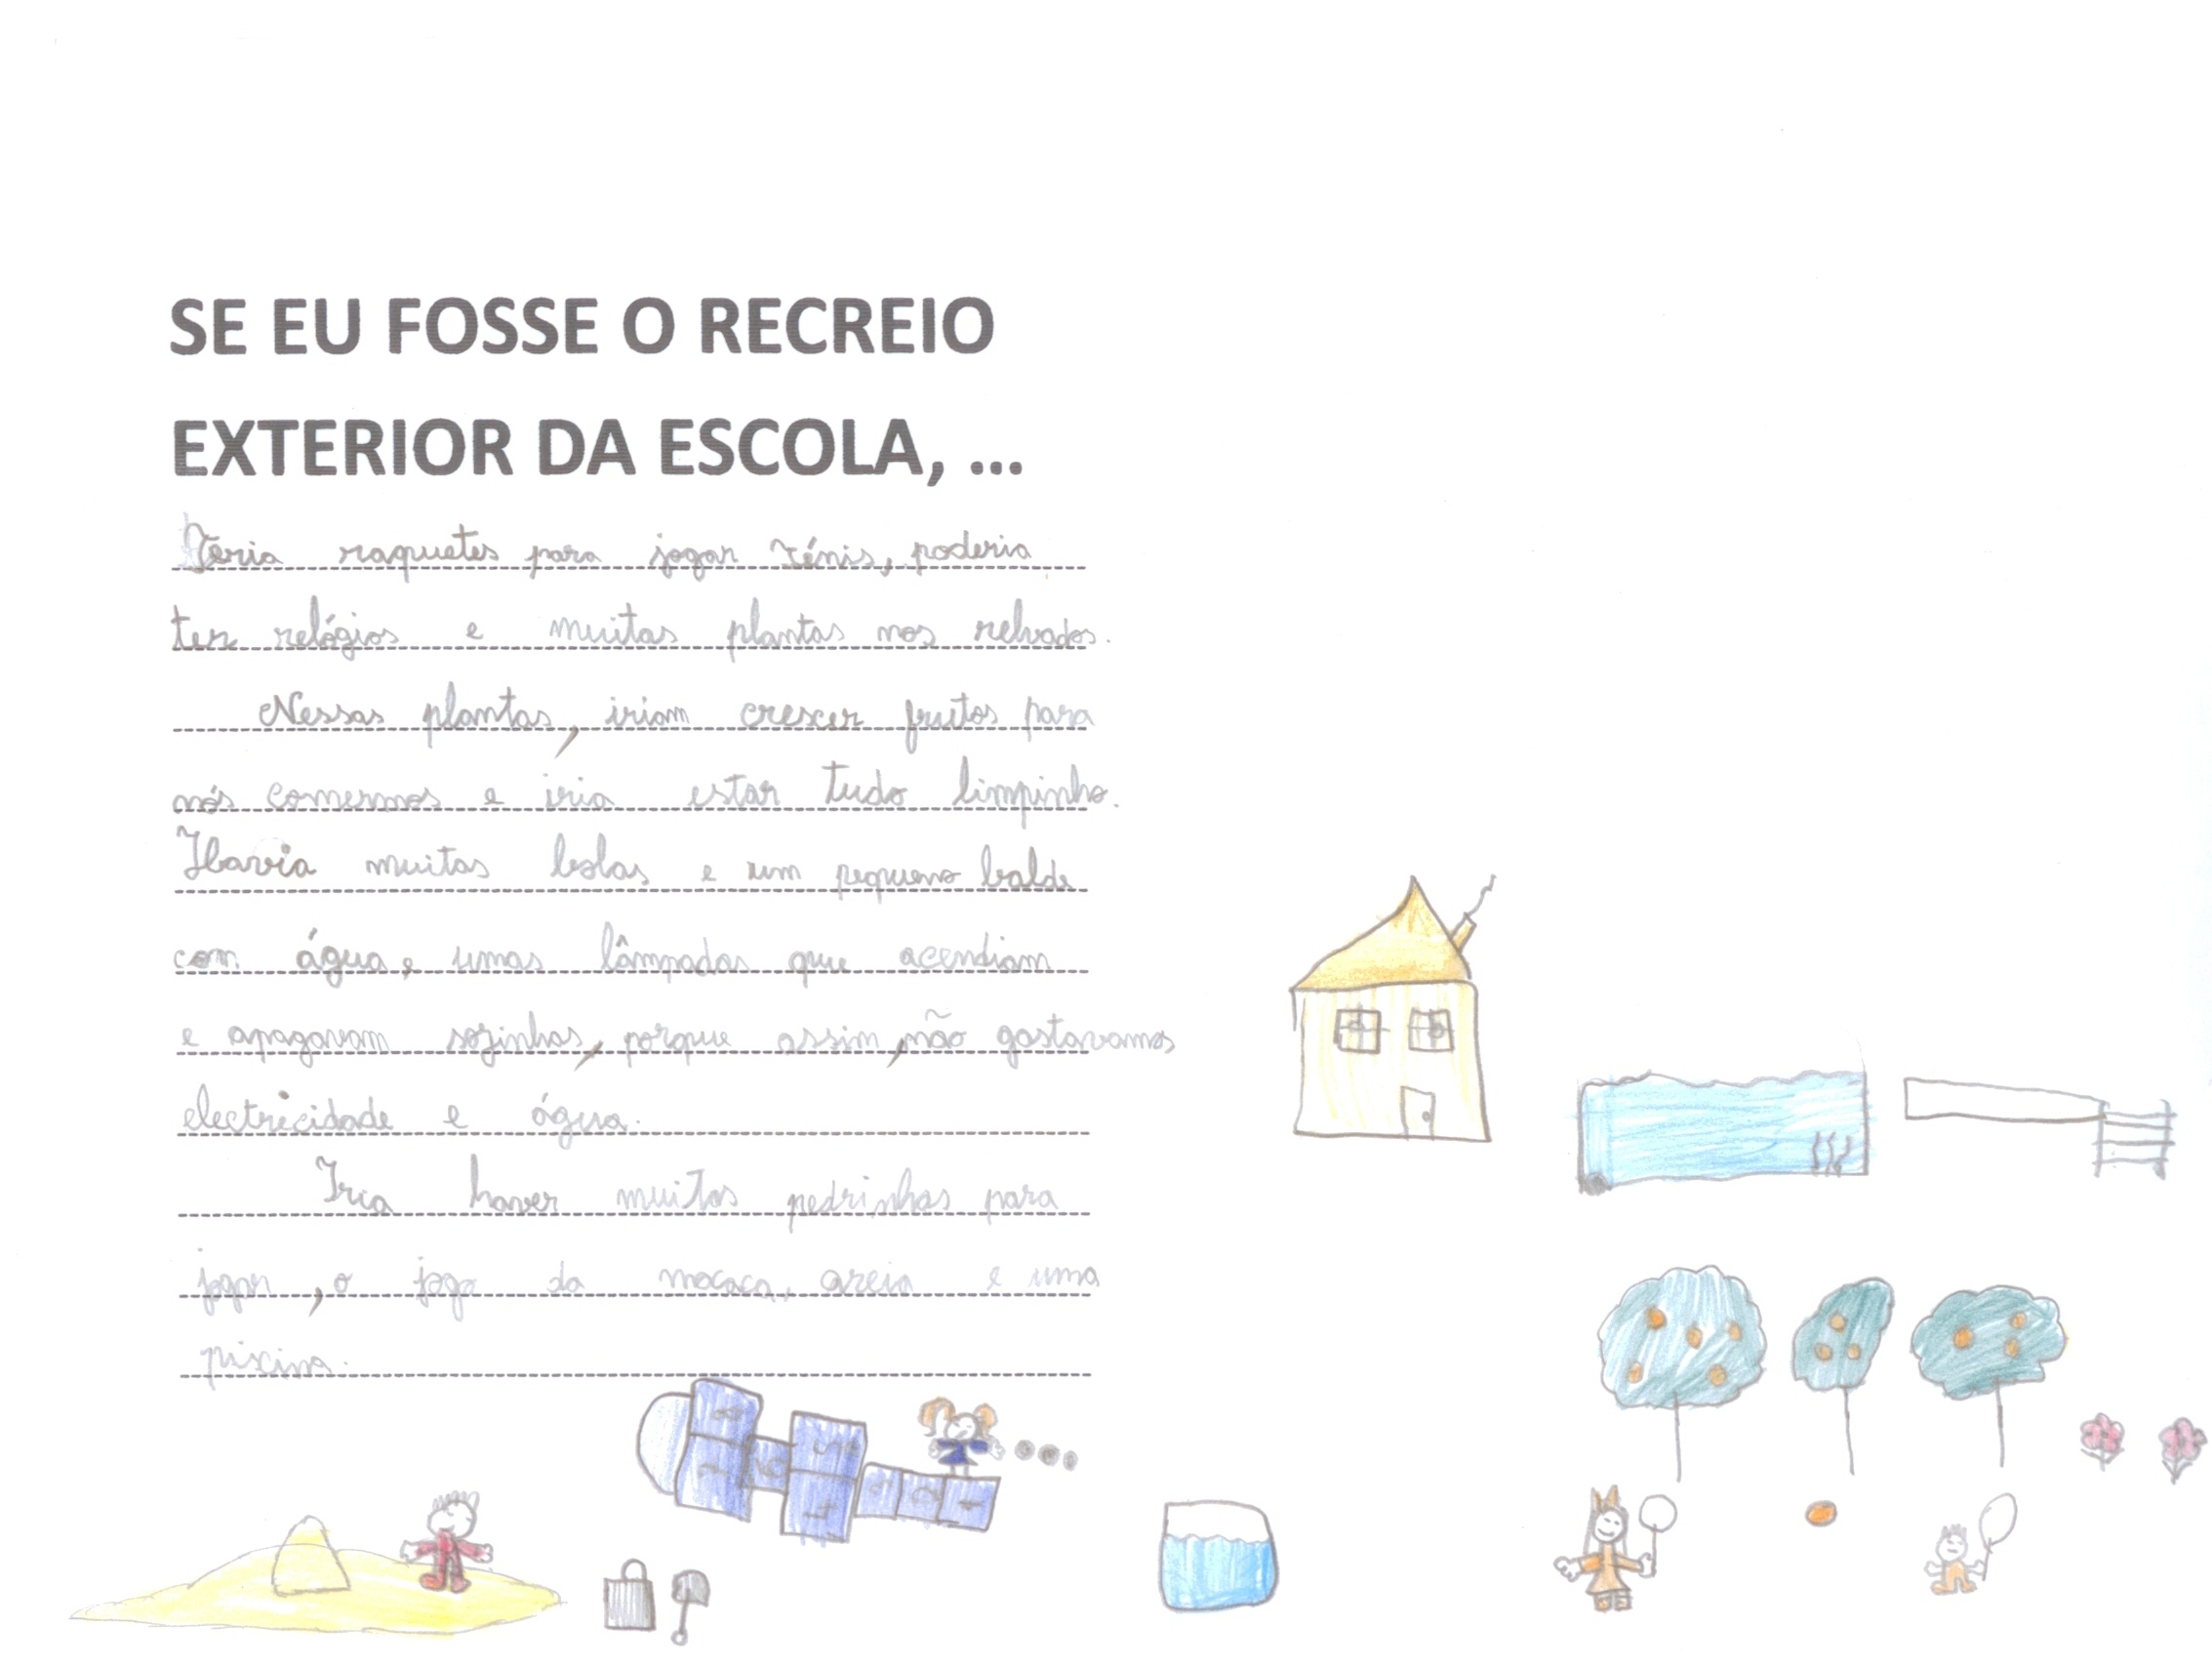 SE EU FOSSE O RECREIO
EXTERIOR DA ESCOLA, ...
Teria raquetes para jogar ténis, poderia
ter relógios e muitas plantas nos relvados.
Nessas plantas, iriam crescer frutos para
nós comermos e iria estar tudo limpinho.
Havia muitas bolas e um pequeno balde
com água, umas lâmpadas que acendiam
e apagavam sozinhas, porque assim, não gastavamos
electricidade e água.
Iria haver muitas pedrinhas para
jogar, o jogo da macaca, areia e uma
piscina.
8
7 6 5
4 3 2 1